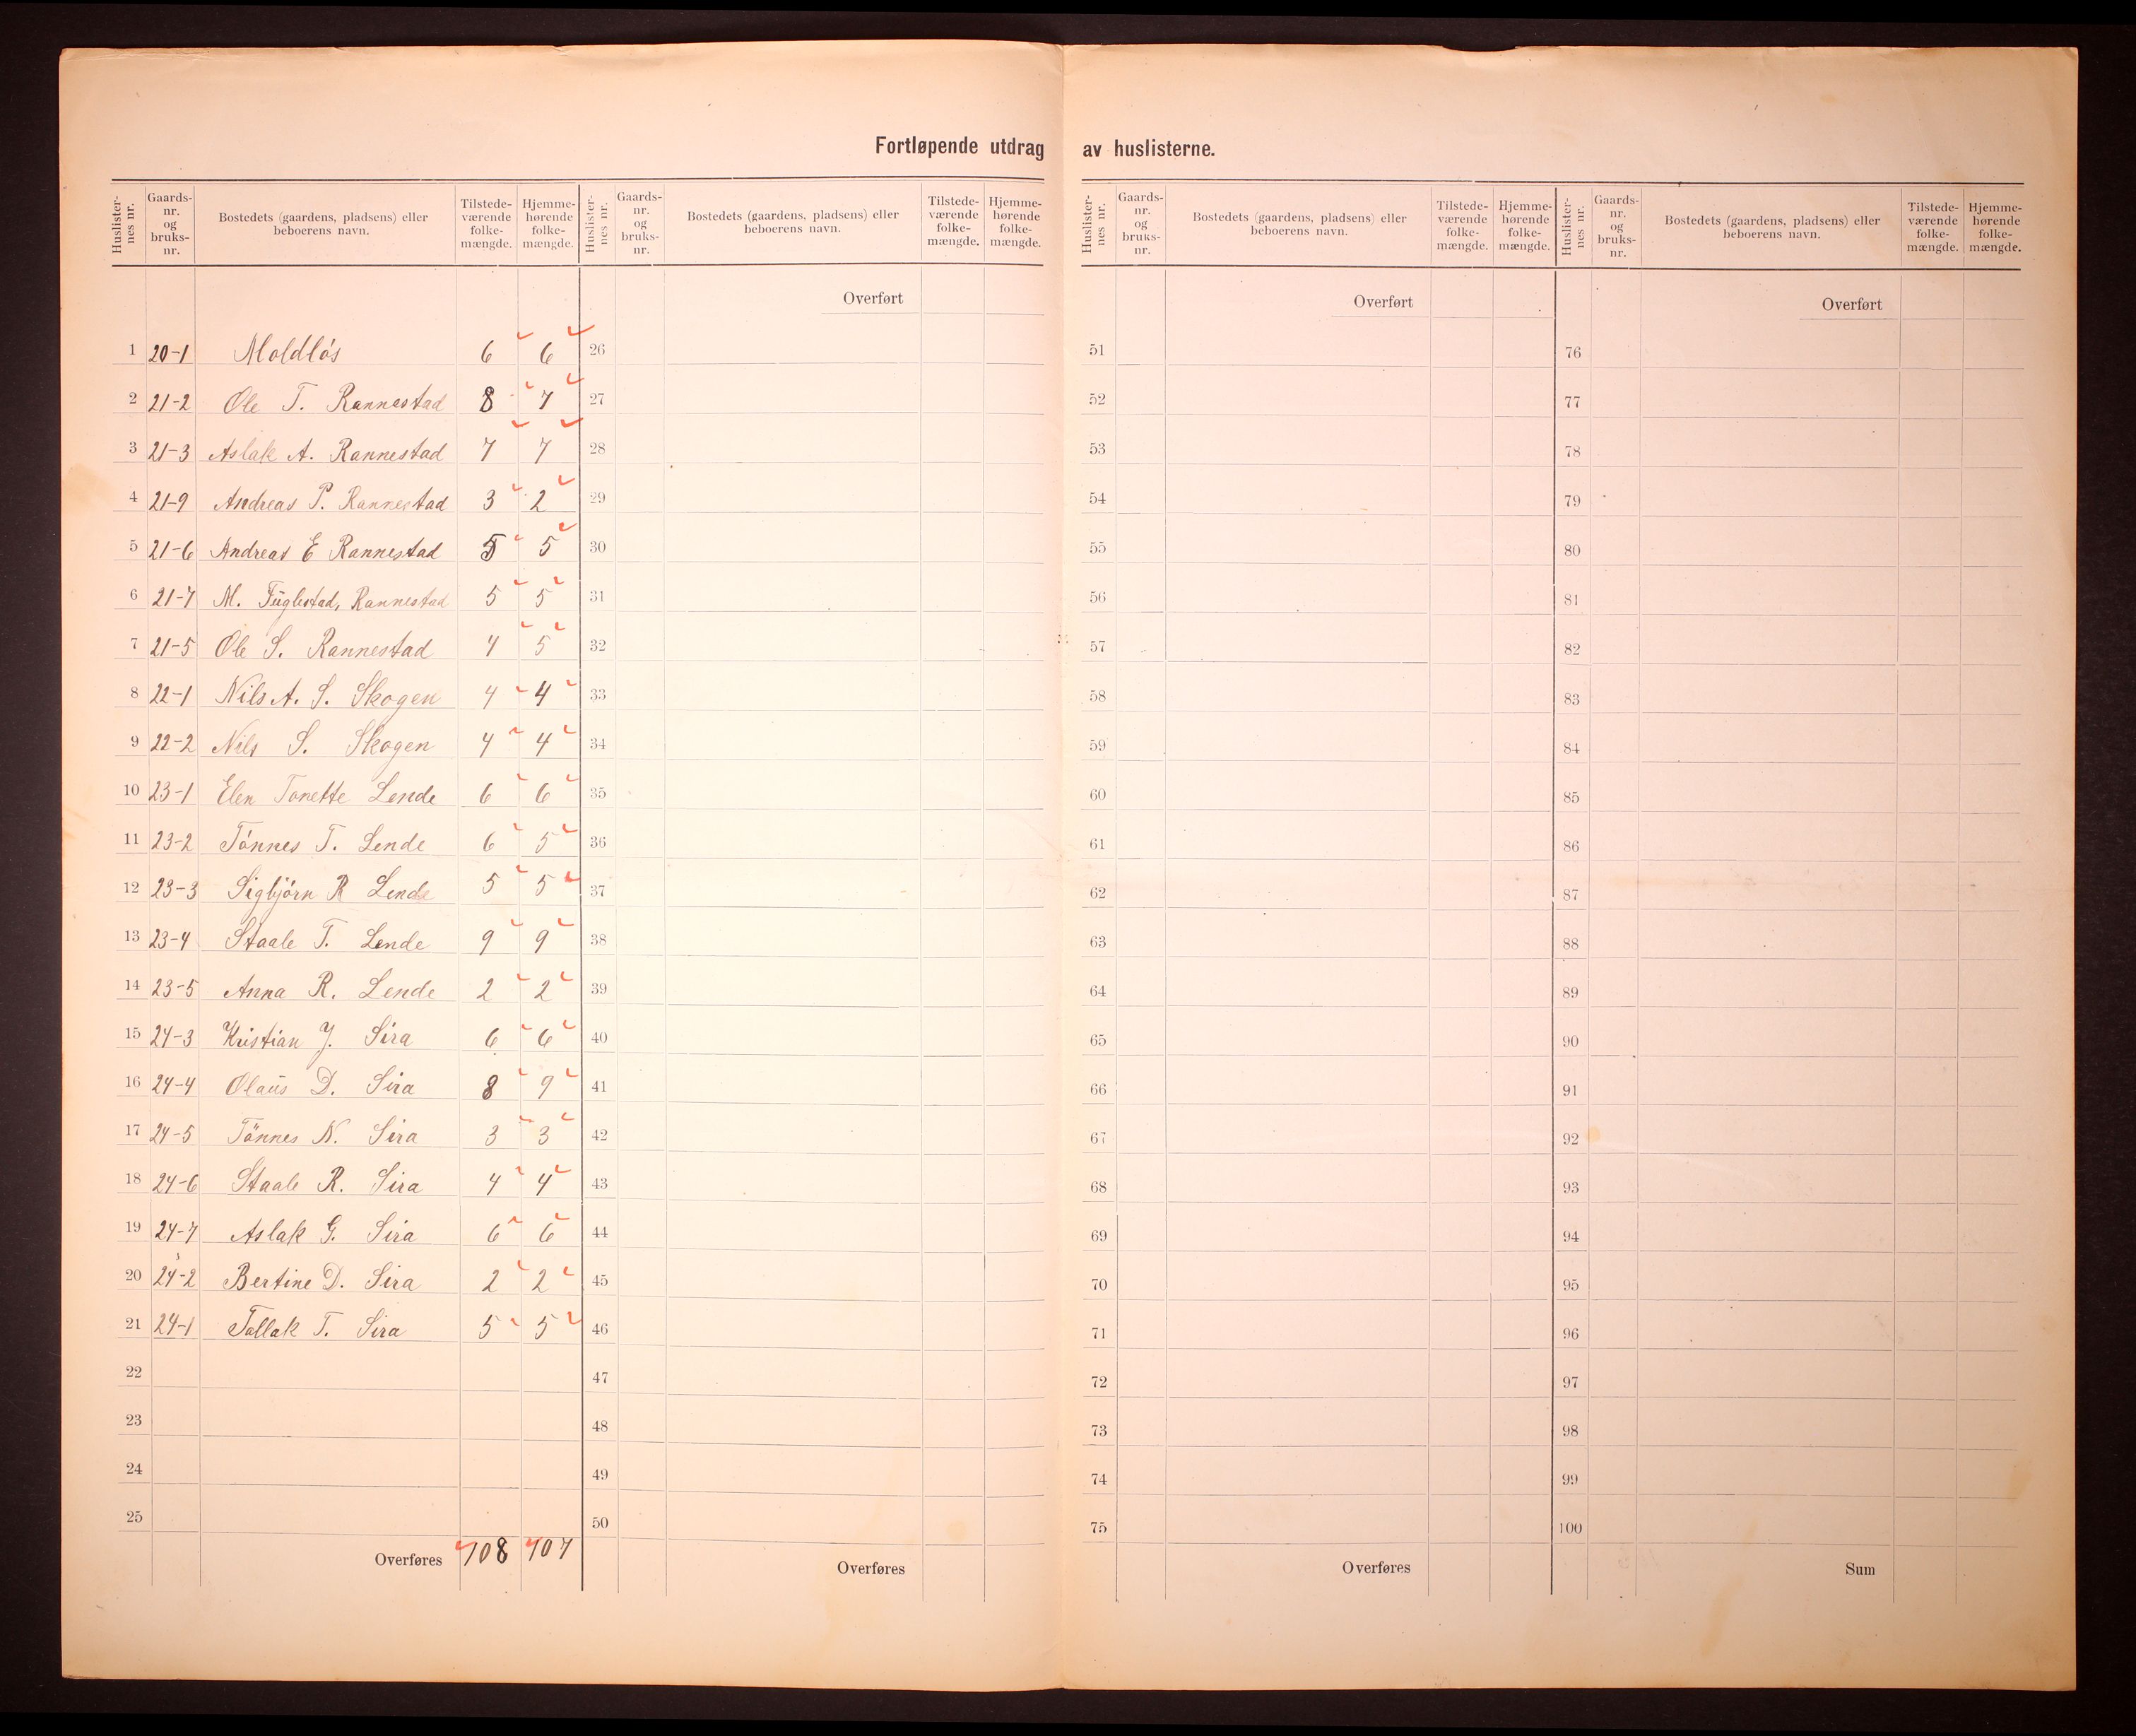 Fortløpende utdrag av huslisterne.
Huslister-nes nr. Gaards-nr. og bruks-nr. Bostedets (gaardens, pladsens) eller beboerens navn. Tilstede-værende folke-mængde. Hjemme-hørende folke-mængde.
1 20-1 Moldlös 6 6
2 21-2 Ole T. Rannestad 8 7
3 21-3 Aslak A. Rannestad 7 7
4 21-9 Andreas P. Rannestad 3 2
5 21-6 Andreas E Rannestad 5 5
6 21-7 M. Fuglestad, Rannestad 5 5
7 21-5 Ole S. Rannestad 4 5
8 22-1 Nils A. S. Skogen 4 4
9 22-2 Nils S. Skogen 4 4
10 23-1 Elen Tonette Lende 6 6
11 23-2 Tönnes T. Lende 6 5
12 23-3 Sigbjörn R Lende 5 5
13 23-4 Staale T. Lende 9 9
14 23-5 Anna R. Lende 2 2
15 24-3 Kristian J. Sira 6 6
16 24-4 Olaus D. Sira 8 9
17 24-5 Tönnes N. Sira 3 3
18 24-6 Staale R. Sira 4 4
19 24-7 Aslak G. Sira 6 6
20 24-2 Bertine D. Sira 2 2
21 24-1 Tallak T. Sira 5 5
22
23
24
25
Overføres 108 107
Huslister-nes nr. Gaards-nr. og bruks-nr. Bostedets (gaardens, pladsens) eller beboerens navn. Tilstede-værende folke-mængde. Hjemme-hørende folke-mængde.
Overført
26
27
28
29
30
31
32
33
34
35
36
37
38
39
40
41
42
43
44
45
46
47
48
49
50
Overføres
Huslister-nes nr. Gaards-nr. og bruks-nr. Bostedets (gaardens, pladsens) eller beboerens navn. Tilstede-værende folke-mængde. Hjemme-hørende folke-mængde.
Overført
51
52
53
54
55
56
57
58
59
60
61
62
63
64
65
66
67
68
69
70
71
72
73
74
75
Overføres
Huslister-nes nr. Gaards-nr. og bruks-nr. Bostedets (gaardens, pladsens) eller beboerens navn. Tilstede-værende folke-mængde. Hjemme-hørende folke-mængde.
Overført
76
77
78
79
80
81
82
83
84
85
86
87
88
89
90
91
92
93
94
95
96
97
98
99
100
Sum